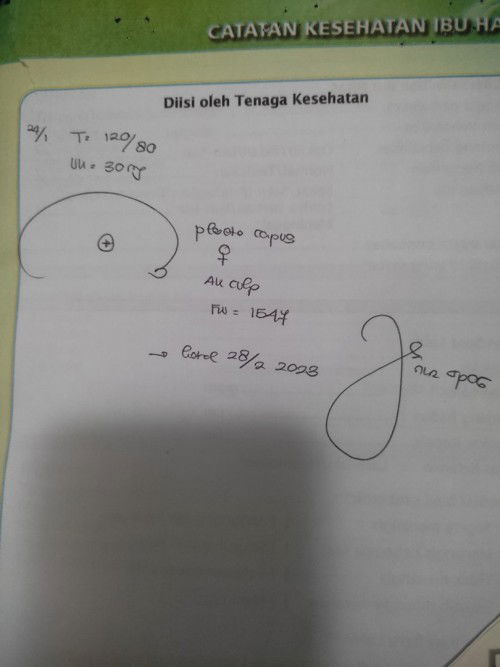 CATATAN KESEHATAN IBU HA
Diisi oleh Tenaga Kesehatan
24/1 T= 120/80
UK = 30 mg
plasenta corpus
♀
AK cukup
FW = 1547
→ kontrol 28/2 2023